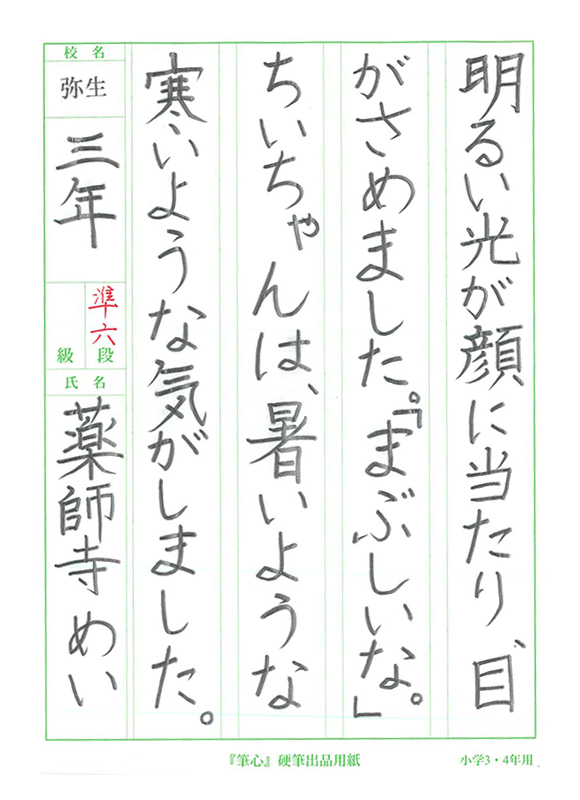 明るい光が顔に当たり、目
がさめました。「まぶしいな。」
ちいちゃんは、暑いような
寒いような気がしました。
校名
弥生
三年
準六
級 段
氏名
薬師寺めい
『筆心』硬筆出品用紙
小学3・4年用